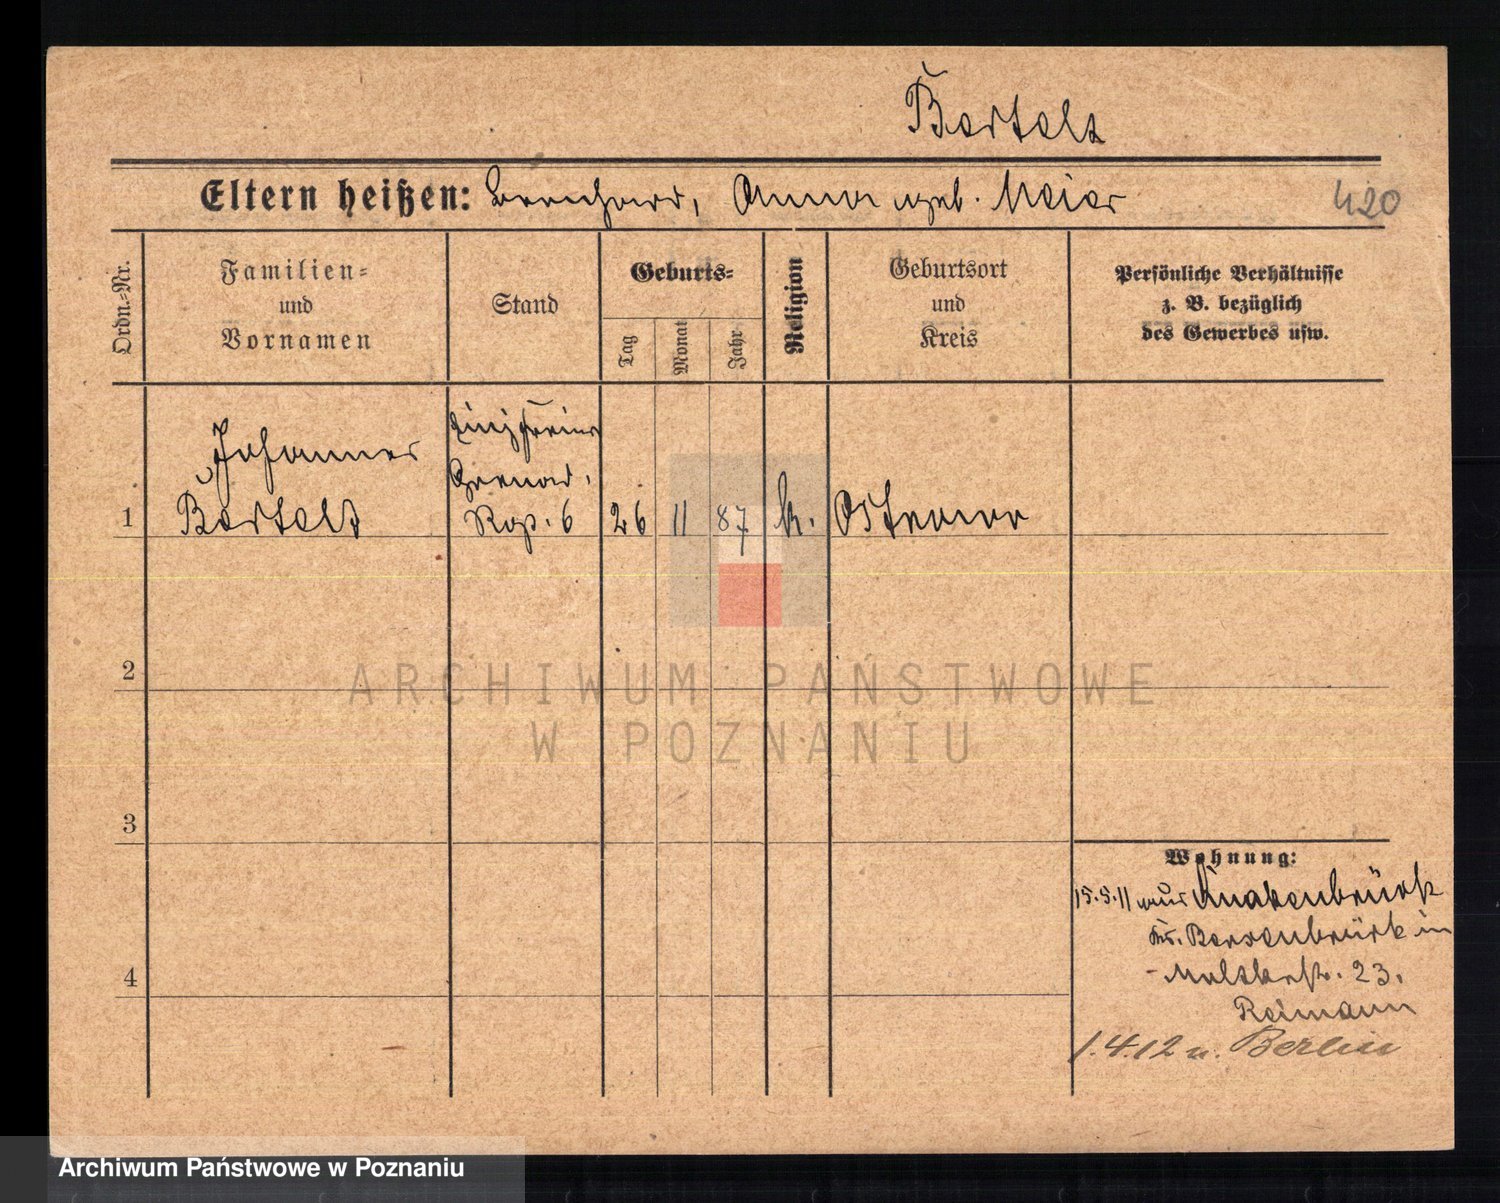 Bartels
Eltern heißen: Bernhard, Anna geb. Meier
420
Ordn.-Nr.
Familien-
und
Vornamen
Stand
Geburts-
Tag
Monat
Jahr
Religion
Geburtsort
und
Kreis
Persönliche Verhältnisse
z. B. bezüglich
des Gewerbes usw.
1
Johannes
Bartels
Einj. Freiw.
Grenad.
Rgt. 6
26
11
87
k.
2
3
4
Wohnung:
15.5.11 aus
Kr. Bersenbrück in
23.
Reimann
1.4.12 n. Berlin
ARCHIWUM PAŃSTWOWE
W POZNANIU
Archiwum Państwowe w Poznaniu